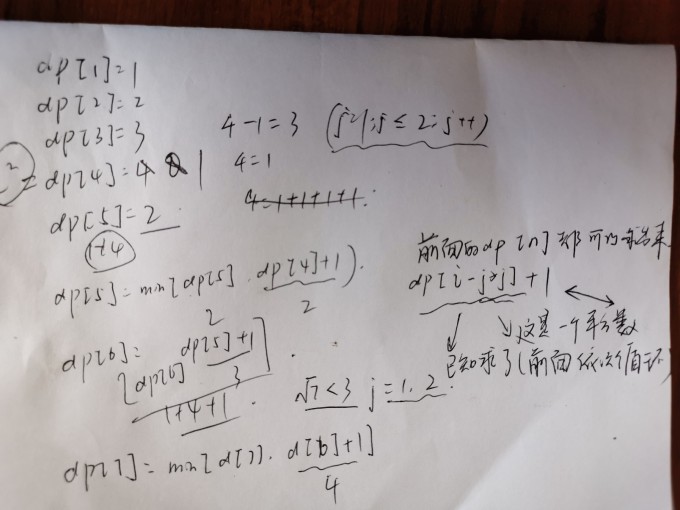 dp[1]=1
dp[2]=2
dp[3]=3
2 = dp[4]=4 2 1
dp[5]=2
1+4
dp[5]=min[dp[5], dp[4]+1).
2 2
dp[6]= dp[5]+1
[dp[6] 3
1+4+1
dp[7]=min[d[7], d[6]+1]
4
4-1=3 (j=1;j≤2;j++)
4=1
4=1+1+1+1.
√7<3 j=1,2.
前面的dp[n]都可以求出来
dp[i-j*j]+1
这是一个平方数
已知求了(前面依次循环)